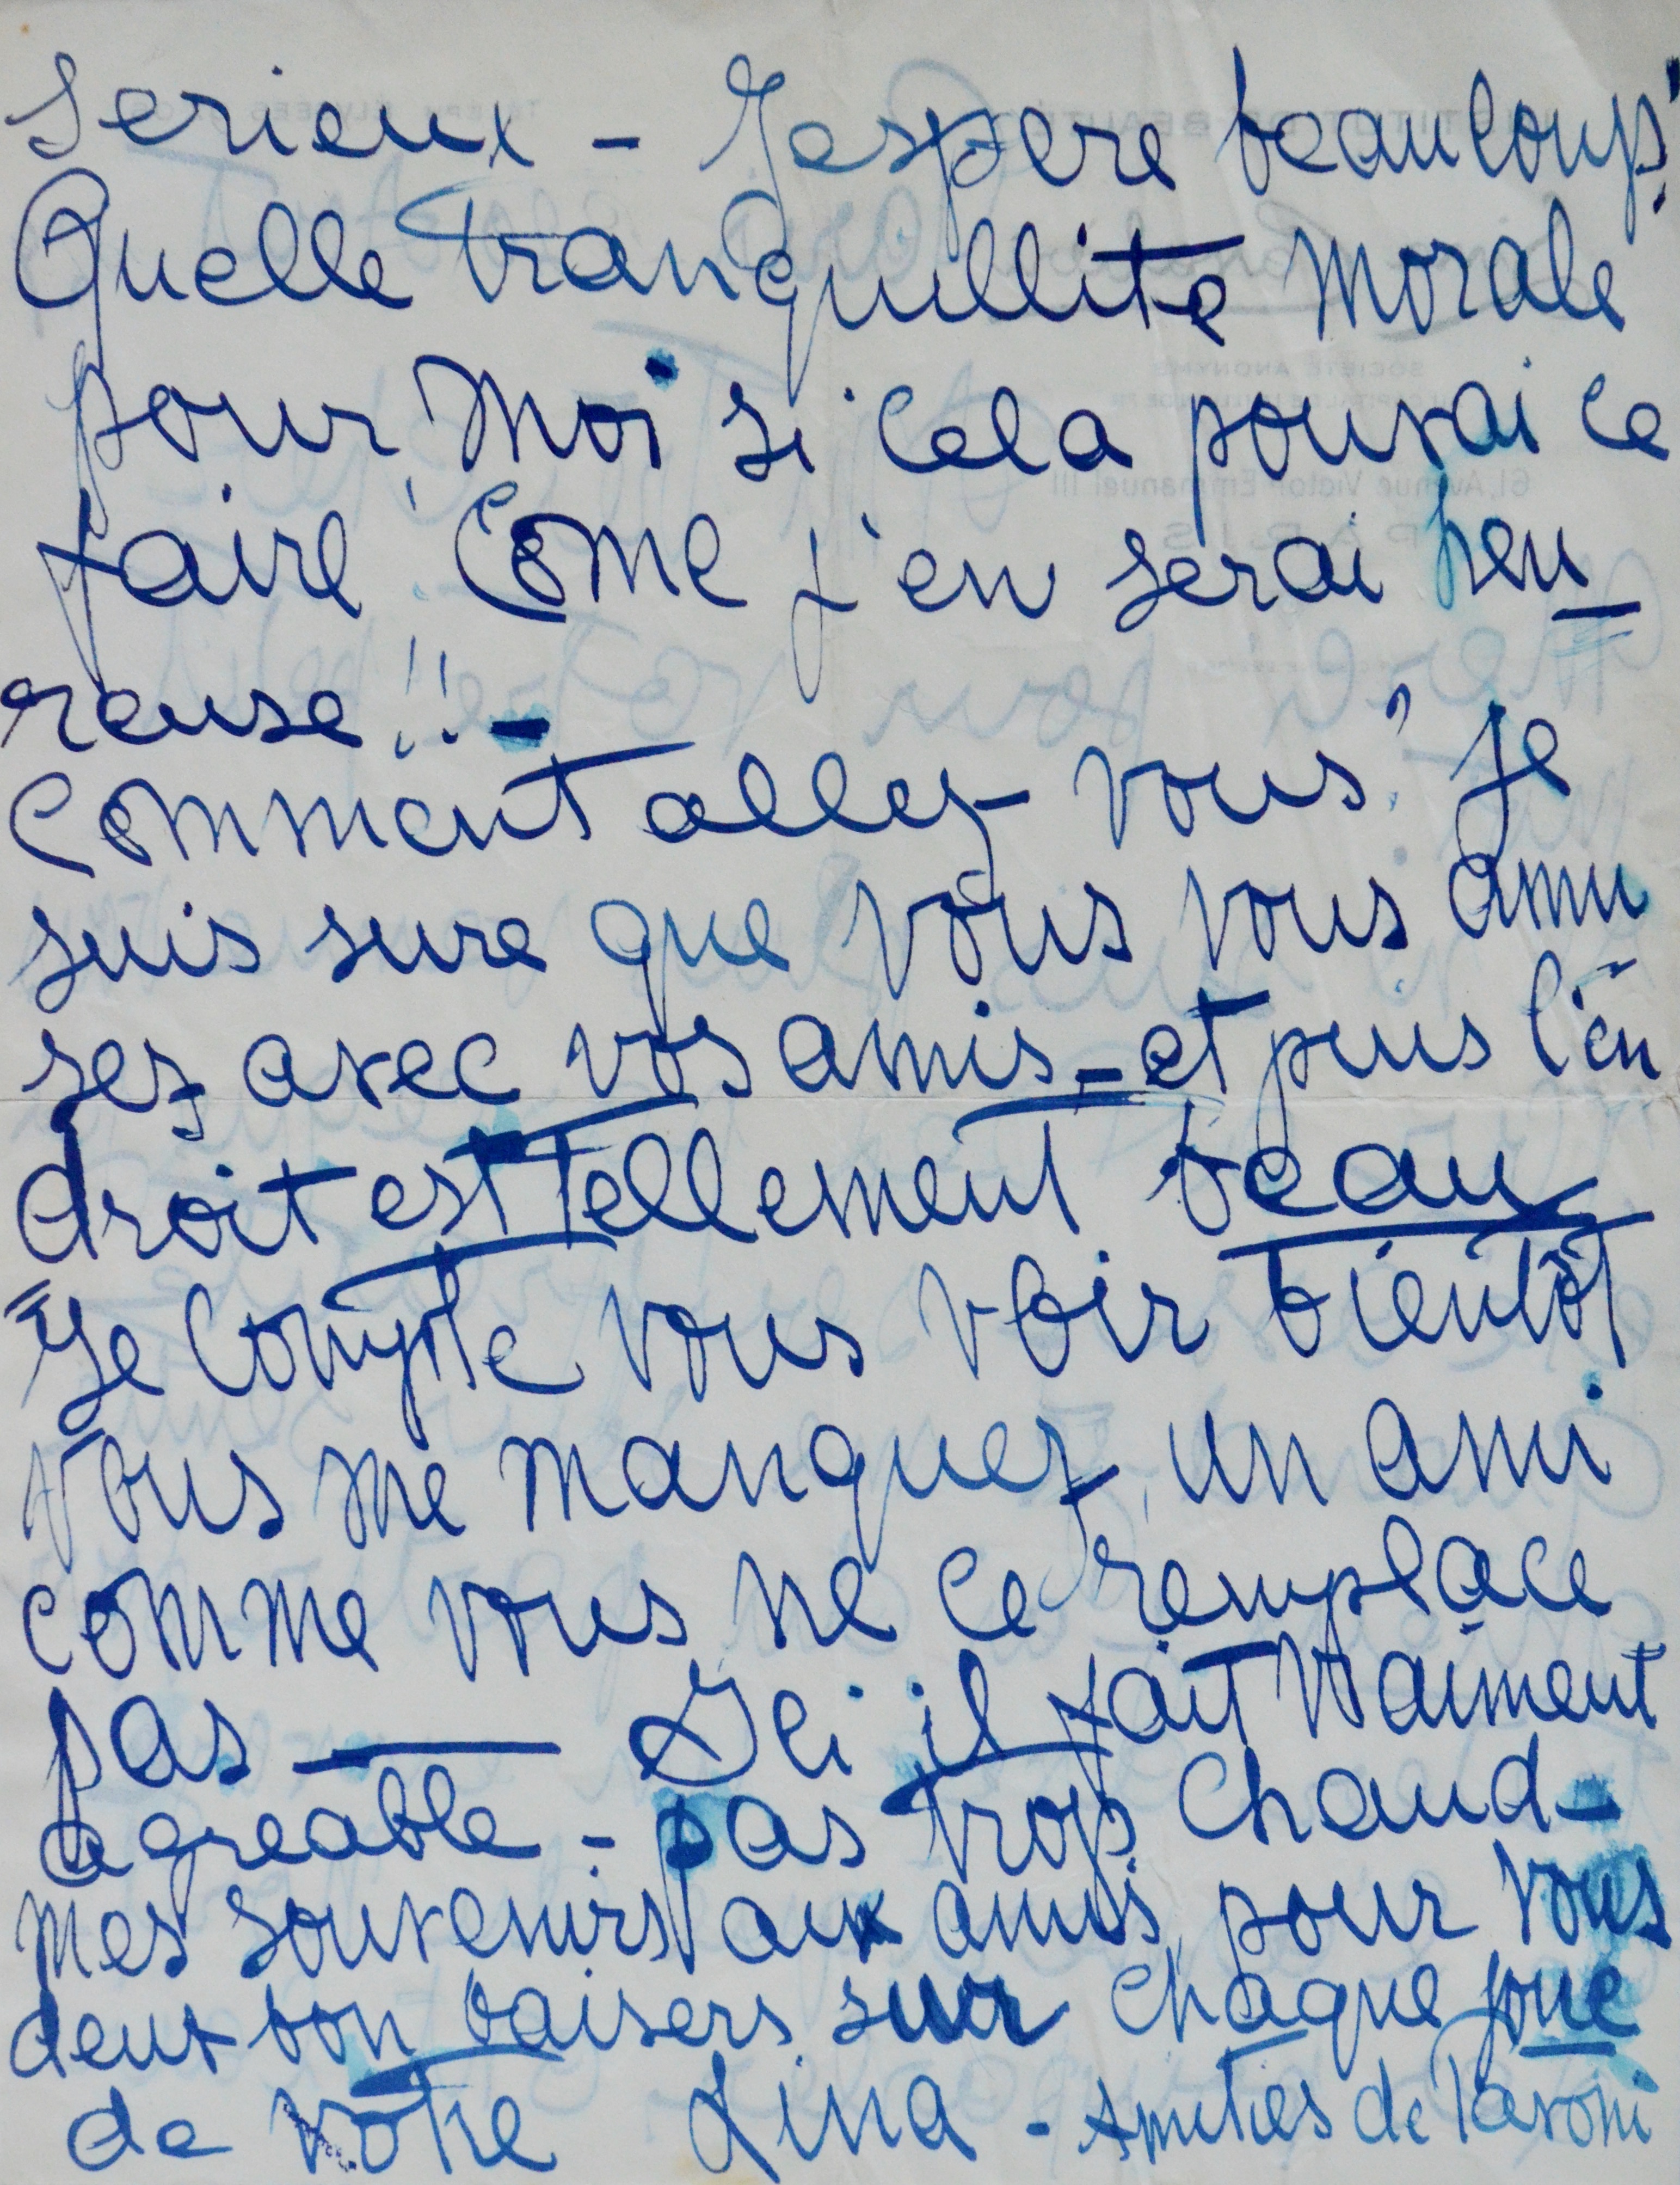 serieux - J'espere beaucoup!
Quelle tranquillite morale
pour moi si cela pouvai ce
faire! Come j'en serai heu-
reuse!! -
Comment allez vous? Je
suis sure que vous vous amu
sez avec vos amis - et puis l'en
droit est tellement beau
- Je compte vous voir bientôt
vous me manquez, un ami
comme vous ne ce remplace
pas — Ici il fait vraiment
agreable - pas trop chaud -
mes souvenirs aux amis, pour vous
deux bon baisers sur chaque joue
de votre Lina - Amities de